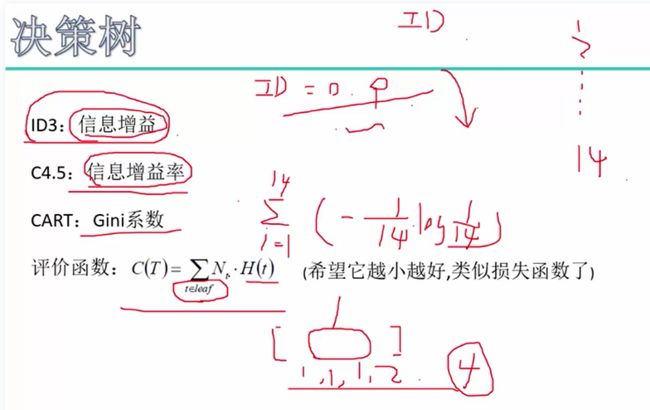 决策树
ID
1
2
14
ID = 0.
ID3：信息增益
C4.5：信息增益率
CART：Gini系数
14 ∑ i=1 ( - 1/14 log 1/14 )
评价函数：C(T) = ∑ t∈leaf N_t · H(t) (希望它越小越好,类似损失函数了)
[ ]
1,1,1,2 4